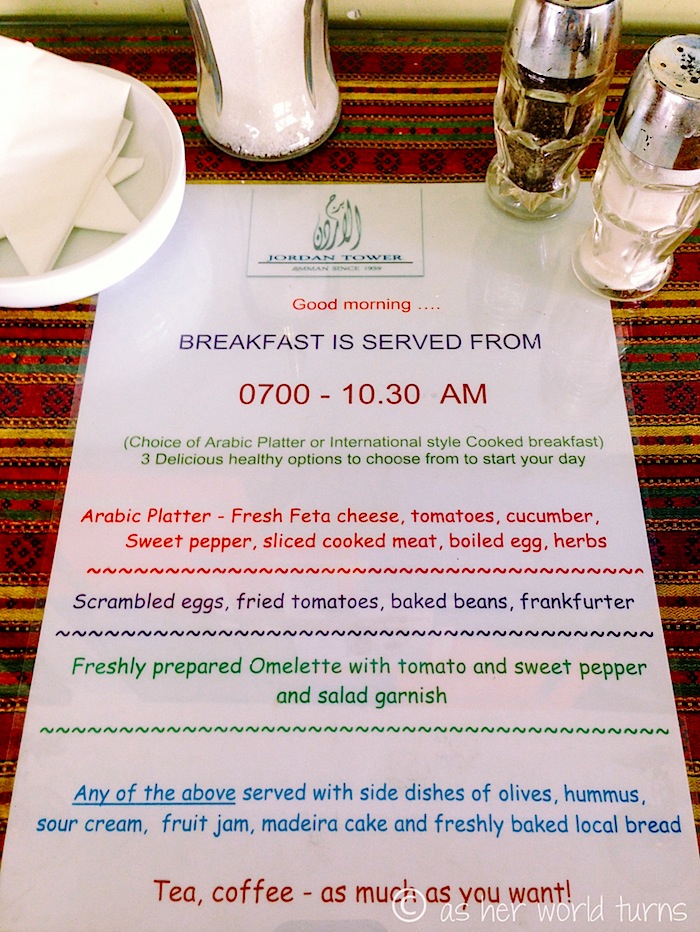 برج الاردن
JORDAN TOWER
AMMAN SINCE 1959
Good morning ....
BREAKFAST IS SERVED FROM
0700 - 10.30 AM
(Choice of Arabic Platter or International style Cooked breakfast)
3 Delicious healthy options to choose from to start your day
Arabic Platter - Fresh Feta cheese, tomatoes, cucumber,
Sweet pepper, sliced cooked meat, boiled egg, herbs
~~~~~~~~~~~~~~~~~~~~~~~~~~~~~~~~~~
Scrambled eggs, fried tomatoes, baked beans, frankfurter
~~~~~~~~~~~~~~~~~~~~~~~~~~~~~~~~~~
Freshly prepared Omelette with tomato and sweet pepper
and salad garnish
~~~~~~~~~~~~~~~~~~~~~~~~~~~~~~~~~~
Any of the above served with side dishes of olives, hummus,
sour cream, fruit jam, madeira cake and freshly baked local bread
Tea, coffee - as much as you want!
© as her world turns